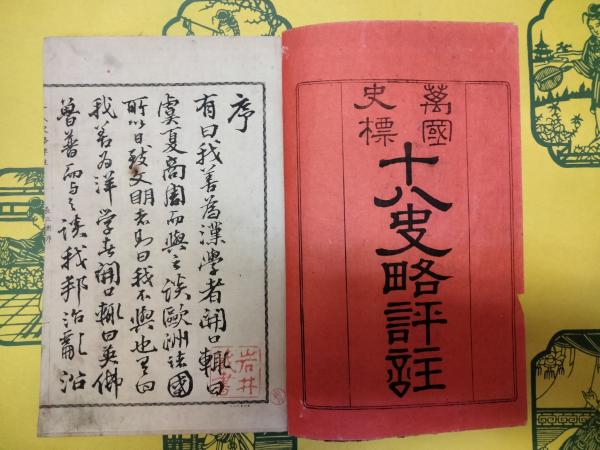 萬國
史標
十八史略評註
序
有曰我善為漢學者開口輒曰
虞夏商周而與之談歐洲諸國
所以日致文明者則曰我不與也曰
我善為洋學者開口輒曰英佛
魯普而与之談我邦治亂沿
岩井
蔵書